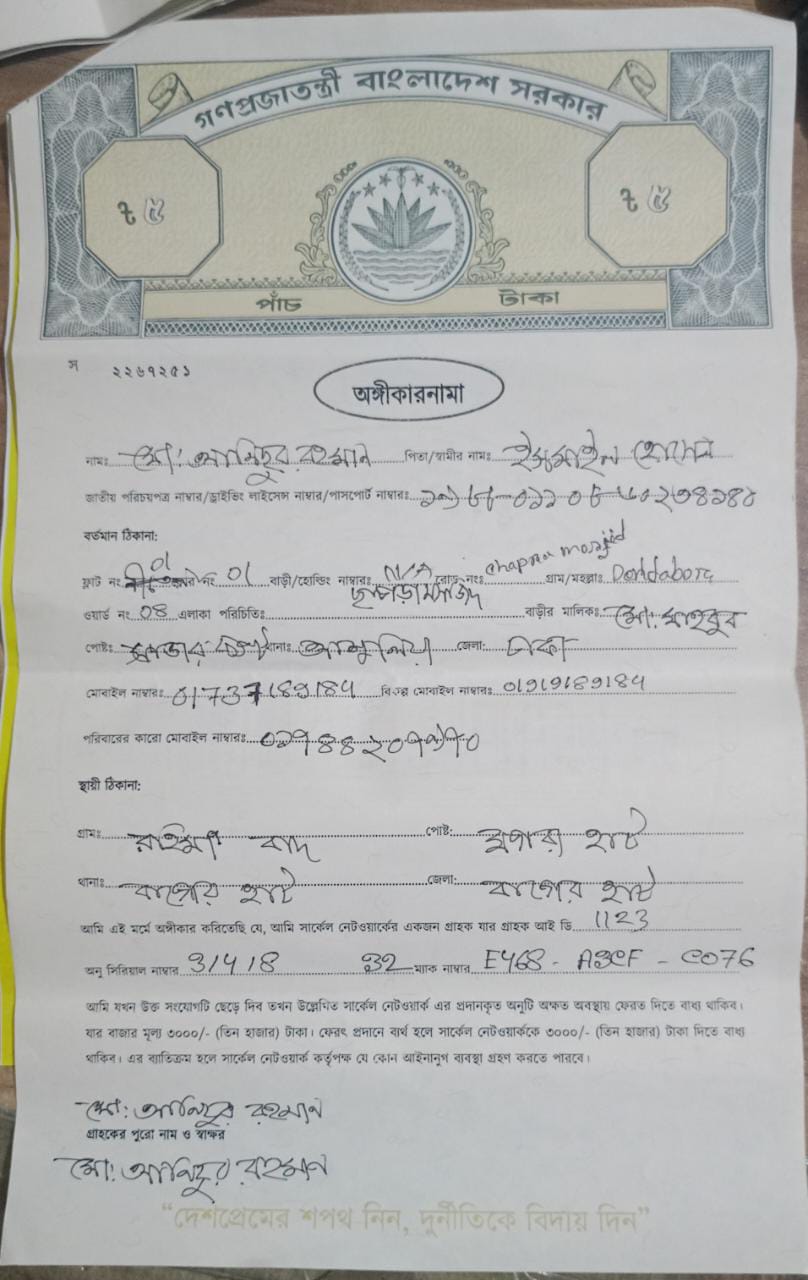 গণপ্রজাতন্ত্রী বাংলাদেশ সরকার
৳ ৫ ৳ ৫
পাঁচ টাকা
স ২২৬৭২৫১
অঙ্গীকারনামা
নামঃ মো: আনিছুর রহমান পিতা/স্বামীর নামঃ ইসমাইল হোসেন
জাতীয় পরিচয়পত্র নাম্বার/ড্রাইভিং লাইসেন্স নাম্বার/পাসপোর্ট নাম্বারঃ
বর্তমান ঠিকানা:
ফ্লাট নং 01 নং 01 বাড়ী/হোল্ডিং নাম্বারঃ N/A রোড নংঃ chapra masjid গ্রাম/মহল্লাঃ
ওয়ার্ড নং 08 এলাকা পরিচিতিঃ ছাপড়া মসজিদ বাড়ীর মালিকঃ মো: মাহবুব
পোষ্টঃ থানাঃ আশুলিয়া জেলা: ঢাকা
মোবাইল নাম্বারঃ 01737189184 বিকল্প মোবাইল নাম্বারঃ 01919189184
পরিবারের কারো মোবাইল নাম্বারঃ
স্থায়ী ঠিকানা:
গ্রামঃ পোষ্ট: হাট
থানাঃ বাগের হাট জেলা: বাগের হাট
আমি এই মর্মে অঙ্গীকার করিতেছি যে, আমি সার্কেল নেটওয়ার্কের একজন গ্রাহক যার গ্রাহক আই ডি 1123
অনু সিরিয়াল নাম্বার 3/4/8 932 ম্যাক নাম্বার E468 - A3CF - C076
আমি যখন উক্ত সংযোগটি ছেড়ে দিব তখন উল্লেখিত সার্কেল নেটওয়ার্ক এর প্রদানকৃত অনুটি অক্ষত অবস্থায় ফেরত দিতে বাধ্য থাকিব।
যার বাজার মূল্য ৩০০০/- (তিন হাজার) টাকা। ফেরৎ প্রদানে ব্যর্থ হলে সার্কেল নেটওয়ার্ককে ৩০০০/- (তিন হাজার) টাকা দিতে বাধ্য
থাকিব। এর ব্যতিক্রম হলে সার্কেল নেটওয়ার্ক কর্তৃপক্ষ যে কোন আইনানুগ ব্যবস্থা গ্রহণ করতে পারবে।
মো: আনিছুর রহমান
গ্রাহকের পুরো নাম ও স্বাক্ষর
মো: আনিছুর রহমান
“দেশপ্রেমের শপথ নিন, দুর্নীতিকে বিদায় দিন”